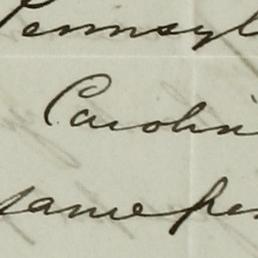 Pennsyl
Carolin
same per